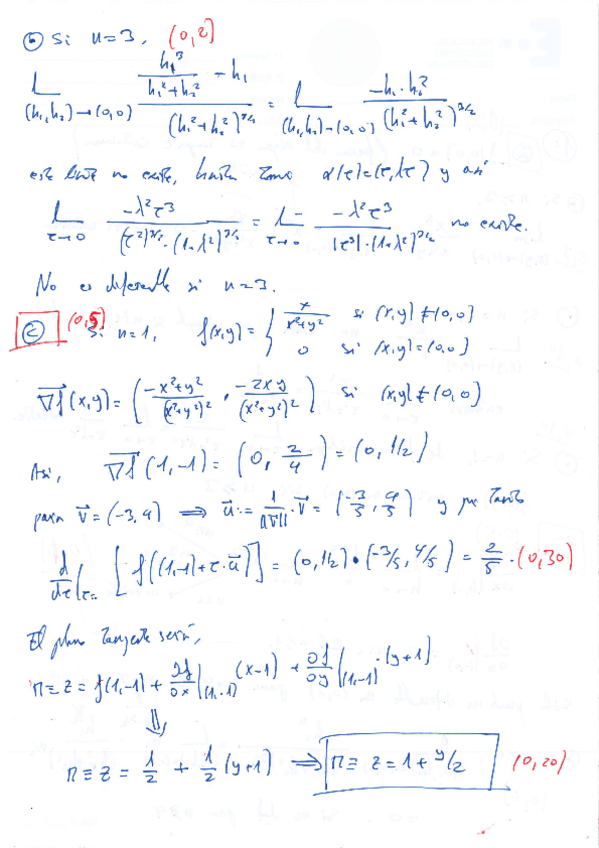 ⓑ Si n=3, (0,2)
L_{(h₁,h₂)→(0,0)} (h₁³/(h₁²+h₂²) - h₁)/(h₁²+h₂²)^{1/2} = L_{(h₁,h₂)→(0,0)} (-h₁·h₂²)/(h₁²+h₂²)^{3/2}
este límite no existe, basta tomar α(τ)=(τ,λτ) y así
L_{τ→0} (-λ²τ³)/((τ²)^{3/2}·(1+λ²)^{3/2}) = L_{τ→0} (-λ²τ³)/(|τ³|·(1+λ²)^{3/2}) no existe.
No es diferenciable si n=3.
ⓒ (0,5) Si n=1, f(x,y) = { x/(x²+y²) si (x,y)≠(0,0)
0 si (x,y)=(0,0)
∇f(x,y) = ((-x²+y²)/(x²+y²)², (-2xy)/(x²+y²)²) si (x,y)≠(0,0)
Así, ∇f(1,-1) = (0, 2/4) = (0, 1/2)
para v⃗=(-3,4) ⇒ u⃗ := 1/||v⃗||·v⃗ = (-3/5, 4/5) y por tanto
d/dτ|_{τ=} [f((1,-1)+τ·u⃗)] = (0,1/2)•(-3/5,4/5) = 2/5. (0,30)
El plano tangente será,
π≡z=f(1,-1)+∂f/∂x|_{(1,-1)}(x-1)+∂f/∂y|_{(1,-1)}·(y+1)
⇓
π≡z = 1/2 + 1/2(y+1) ⇒ π≡z=1+y/2 (0,20)